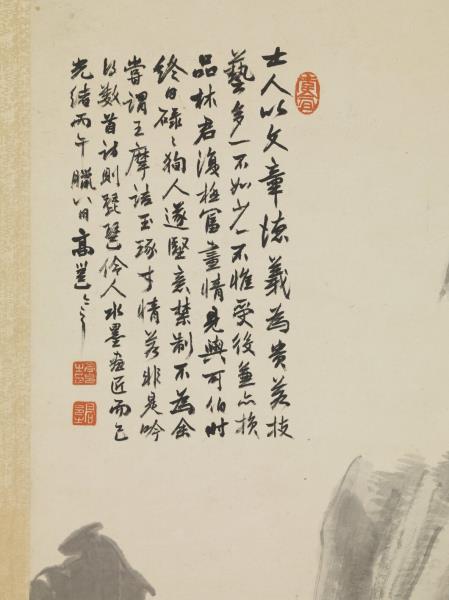 士人以文章德義為貴若技
藝多一不如少一不惟受役兼亦損
品林君復極富畫情見與可伯時
終日碌〻狥人遂堅意禁制不為余
嘗謂王摩詰玉琢才情若非是吟
得數首詩則琵琶伶人水墨畫匠而已
光緒丙午臘八日高邕之